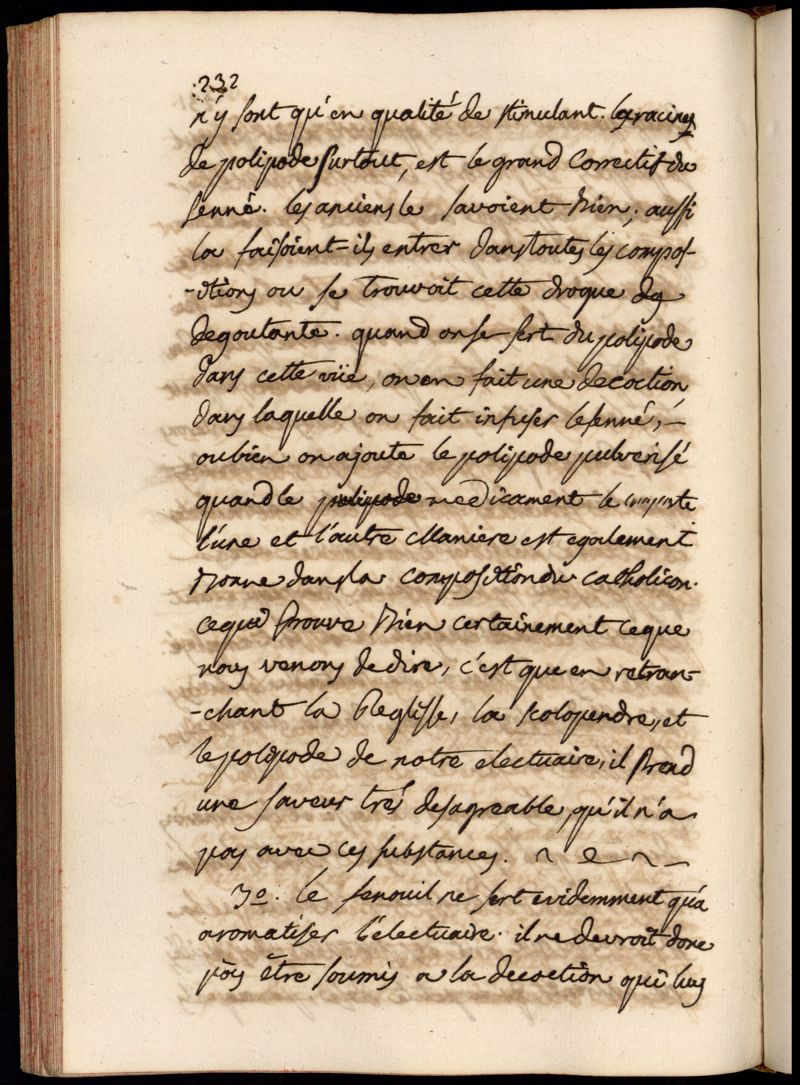 232
n'y sont qu'en qualité de stimulant. la racine
de polipode surtout, est le grand correctif du
senné. les anciens le savoient bien, aussi
la faisoient-ils entrer dans toutes les compos-
-itions ou se trouvoit cette drogue dg
degoutante. quand on se sert du polipode
dans cette vüe, on en fait une decoction
dans laquelle on fait infuser le senné, -
ou bien on ajoute le polipode pulverisé
quand le polipode medicament le comporte
l'une et l'autre Maniere est egalement
bonne dans la composition du catholicon.
ce qui prouve bien certainement ce que
nous venons de dire, c'est que en retran-
-chant la Reglisse, la scolopendre, et
le polipode de notre electuaire, il prend
une saveur trés desagreable, qu'il n'a
pas avec ces substances.
3o. le fenouil ne sert evidemment qu'a
aromatiser l'electuaire. il ne devroit donc
pas être soumis a la decoction qui luy